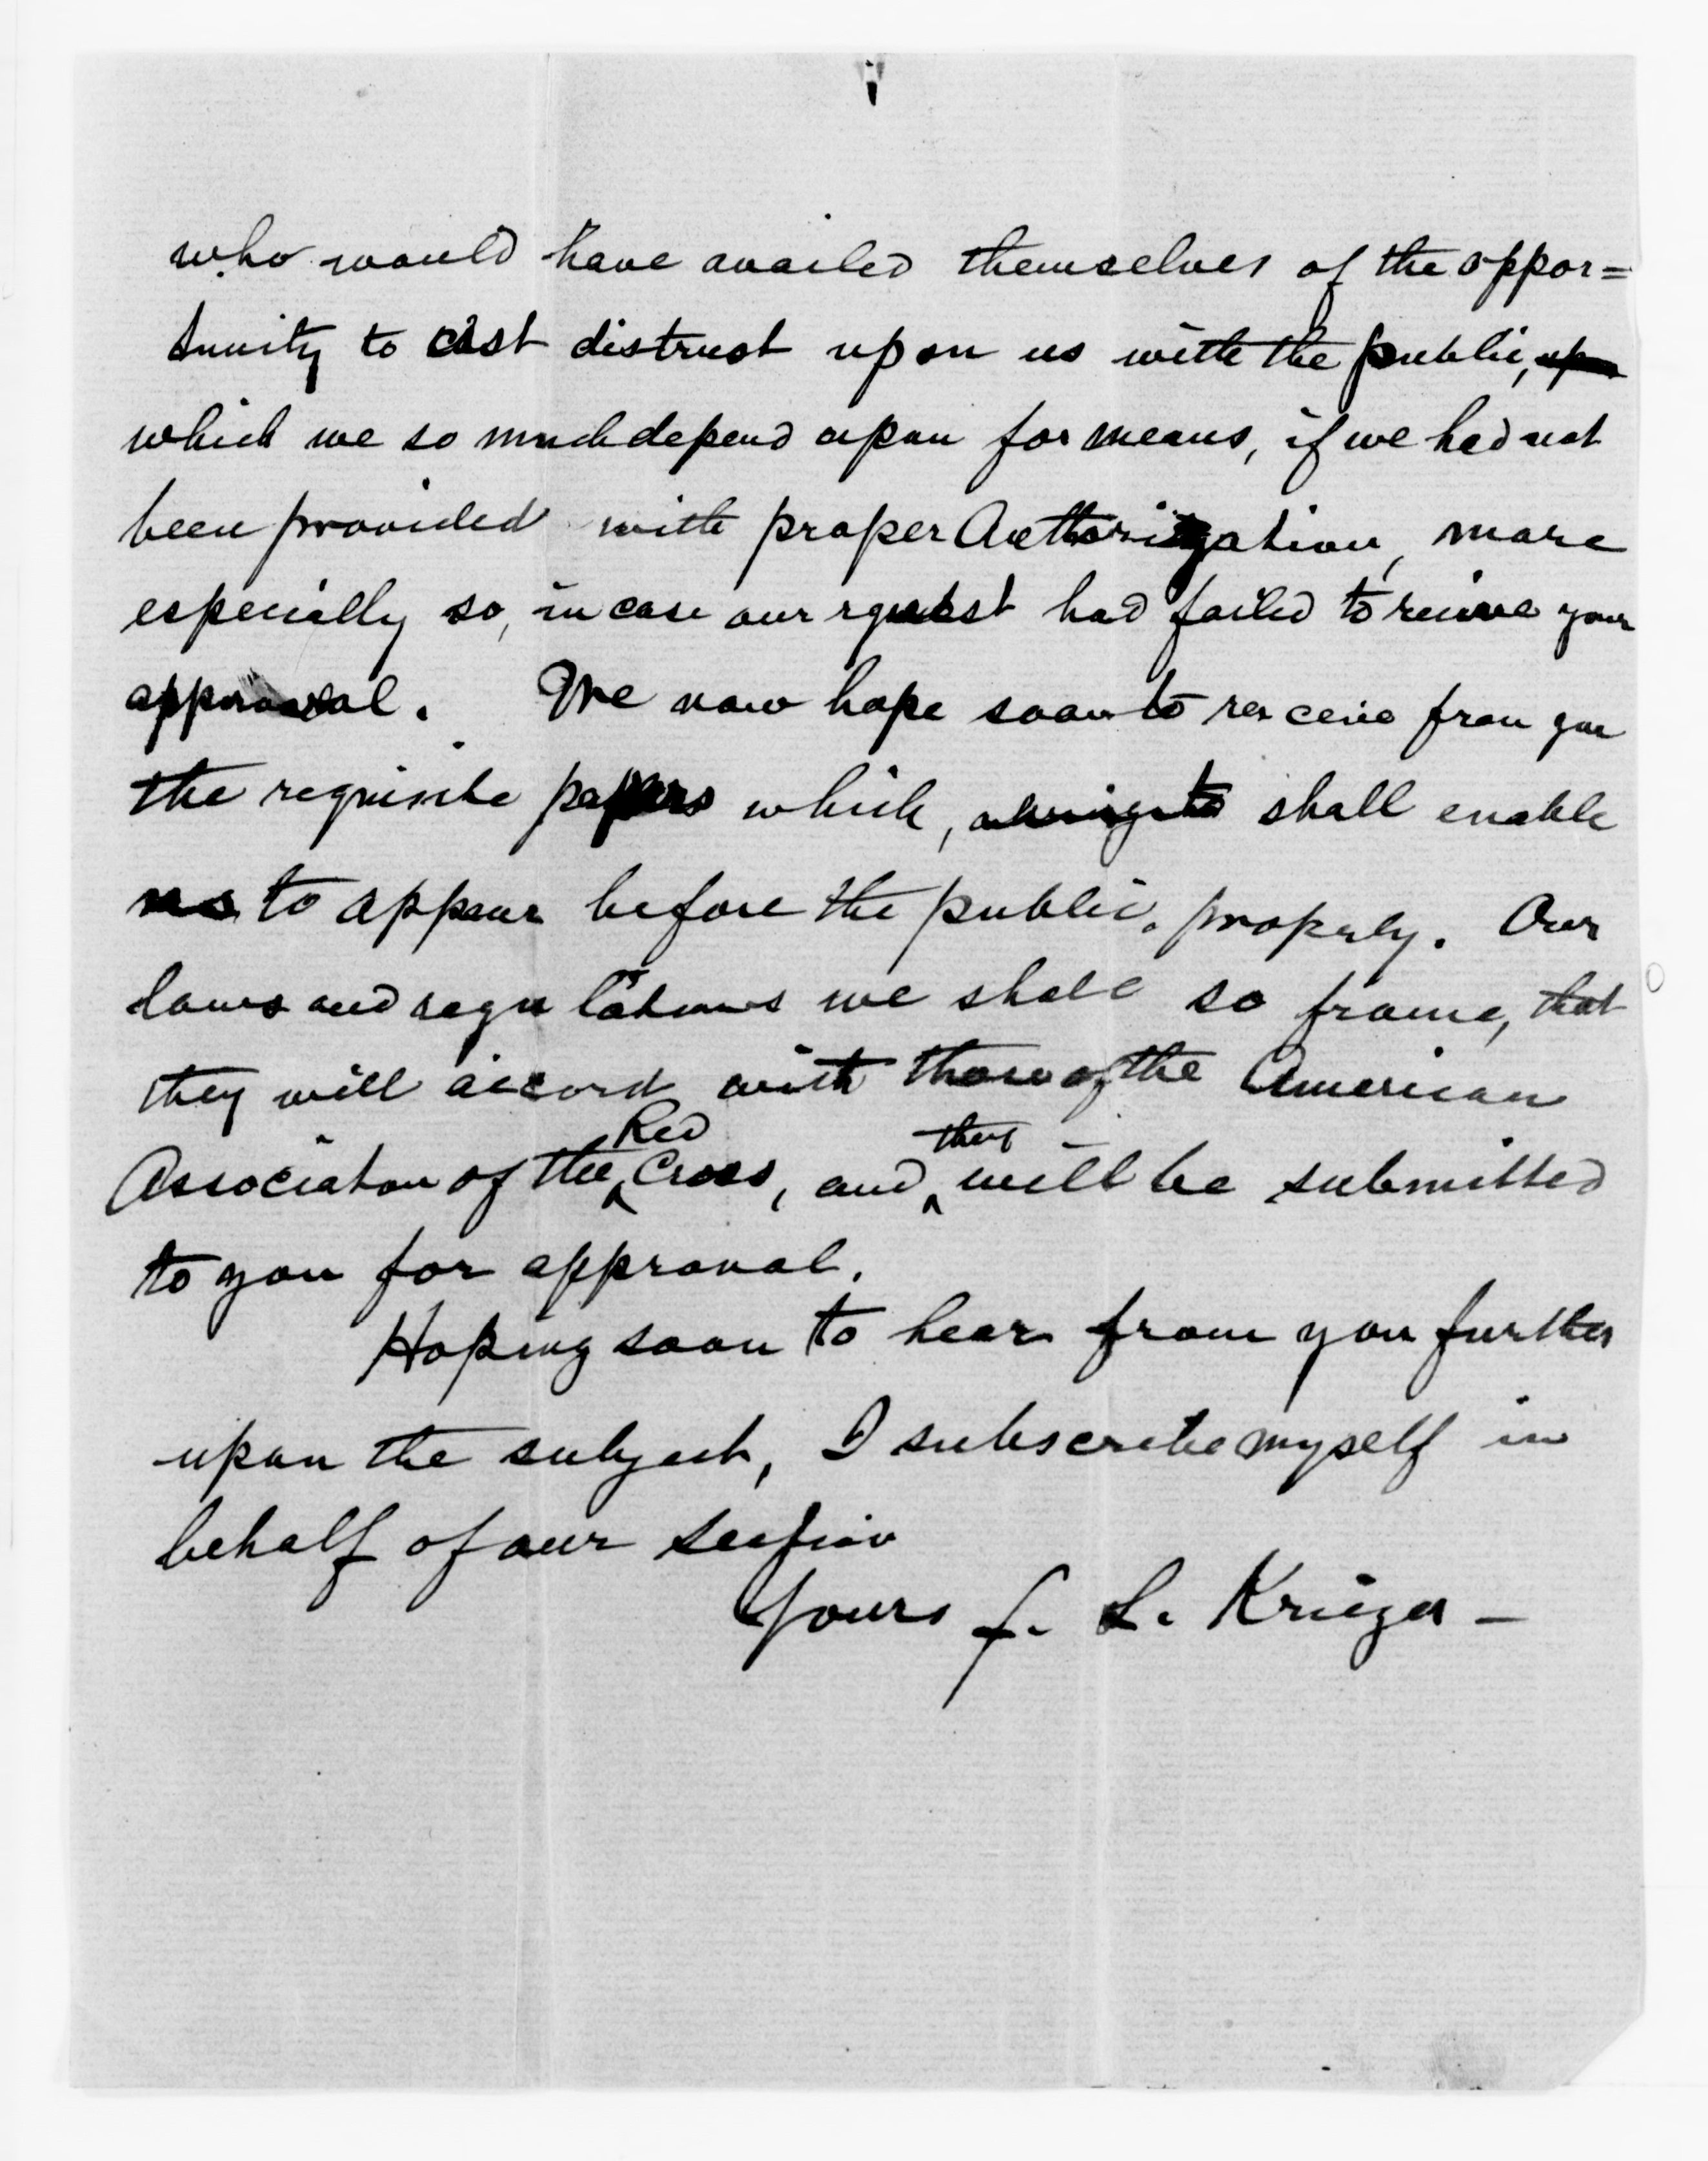 who would have availed themselves of the oppor=
tunity to cast distrust upon us with the public, up
which we so much depend upon for means, if we had not
been provided with proper Authorization, more
especially so, in case our rquest had failed to recieve your
approval. We now hope soon to receive from you
the requisite papers which, shall enable
us to appear before the public, properly. Our
laws and regulations we shall so frame, that
they will accord with those of the American
Association of the Red Cross, and they will be submitted
to you for approval.
Hoping soon to hear from you further
upon the subject, I subscribe myself in
behalf of our section
Yours J. L. Krieger –